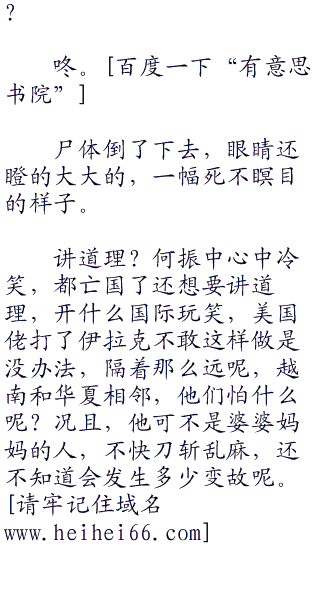 ?
咚。[百度一下“有意思
书院”]
尸体倒了下去，眼睛还
瞪的大大的，一幅死不瞑目
的样子。
讲道理？何振中心中冷
笑，都亡国了还想要讲道
理，开什么国际玩笑，美国
佬打了伊拉克不敢这样做是
没办法，隔着那么远呢，越
南和华夏相邻，他们怕什么
呢？况且，他可不是婆婆妈
妈的人，不快刀斩乱麻，还
不知道会发生多少变故呢。
[请牢记住域名
www.heihei66.com]